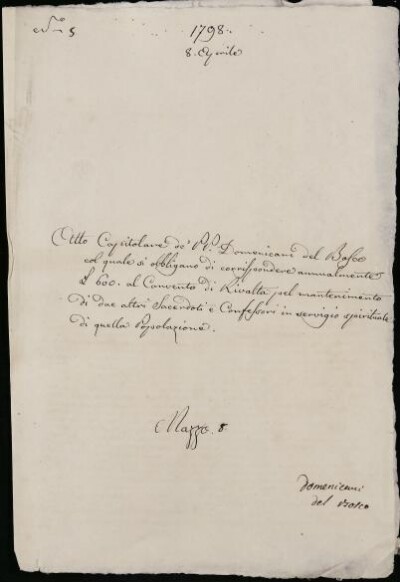 N.º 5
1798.
8. Aprile
Atto Capitolare de' PP. Domenicani del Bosco
col quale si obbligano di corrispondere annualmente
£ 600. al Convento di Rivalta pel mantenimento
di due altri Sacerdoti e Confessori in servigio spirituale
di quella Popolazione.
Mazzo 8.
Domenicani
del Bosco